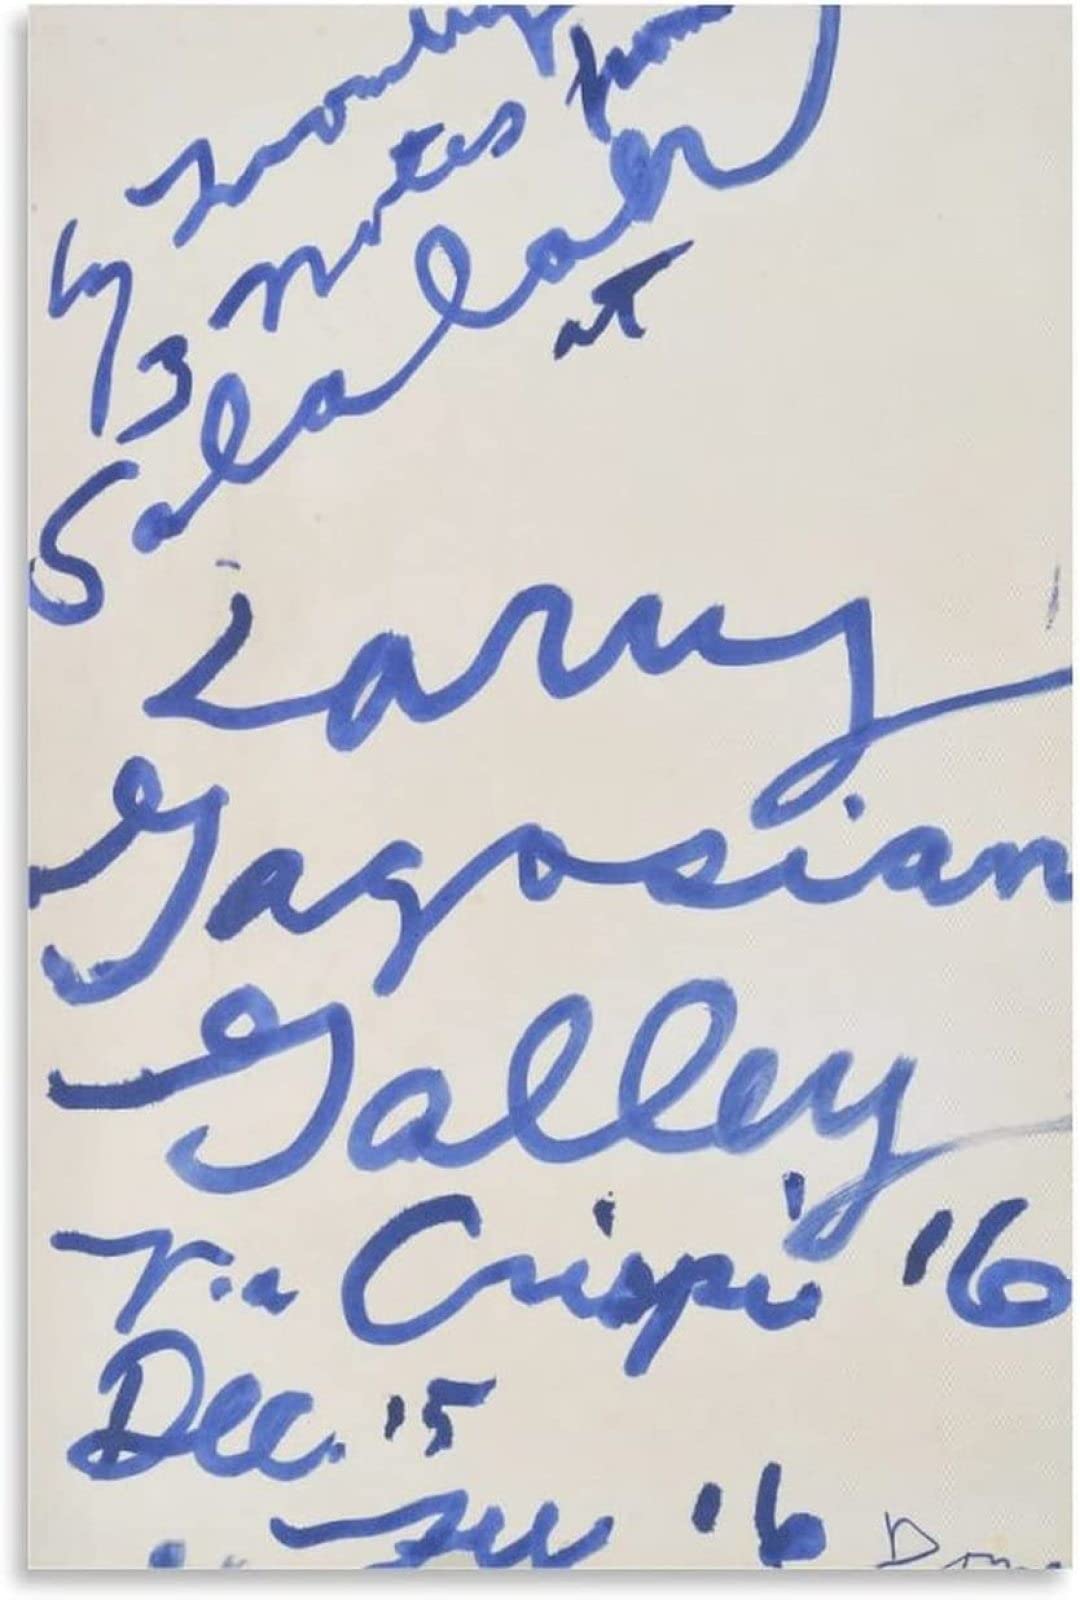 Twombly
by 3 notes from
Salalah
at
Larry
Gagosian
Gallery
Via Crispi '16
Dec. '15
'16